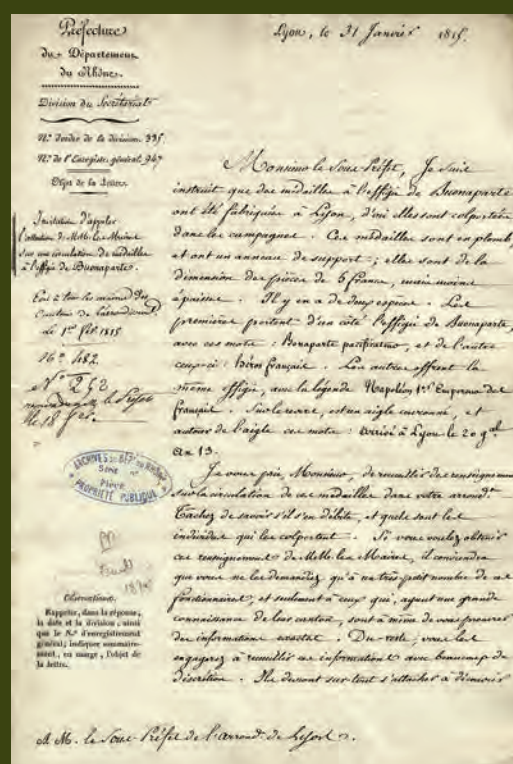 Préfecture
du Département
du Rhône.
Division du Secrétariat
N.° d'ordre de la division. 335
N.° de l'Enregistre. général. 947
Objet de la Lettre.
Invitation d'appeler
l'attention de MM. les Maires
sur une circulation de médailles
à l'effigie de Buonaparte.
Ecrit à tous les maires des
Cantons de l'arrondissem.t
Le 1.er fév. 1815
N° 252
le 18 fév.
ARCHIVES DU DÉP.T DU RHÔNE
Série
Pièce
PROPRIÉTÉ PUBLIQUE
Observations.
Rappeler, dans la réponse,
la date et la division, ainsi
que le N.° d'enregistrement
général; indiquer sommaire-
ment, en marge, l'objet de
la lettre.
Lyon, le 31 Janvier 1815.
Monsieur le Sous-Préfet, Je suis
instruit que des médailles à l'effigie de Buonaparte
ont été fabriquées à Lyon, d'où elles sont colportées
dans les campagnes. Ces médailles sont en plomb,
et ont un anneau de support; elles sont de la
dimension des pièces de 5 francs, mais moins
épaisses. Il y en a de deux espèces. Les
premières portent d'un côté l'effigie de Buonaparte,
avec ces mots: Bonaparte pacificateur, et de l'autre
ceux-ci: héros français. Les autres offrent la
même effigie, avec la légende Napoléon 1.er Empereur des
français. Sur le revers, est un aigle couronné, et
autour de l'aigle ces mots: arrivé à Lyon le 20 g.al
an 13.
Je vous prie, Monsieur, de recueillir des renseignemens
sur la circulation de ces médailles dans votre arrond.t
Tâchez de savoir s'il s'en débite, et quels sont les
individus qui les colportent. Si vous voulez obtenir
ces renseignemens de MM. les Maires, il conviendra
que vous ne les demandiez qu'à un très petit nombre de ces
fonctionnaires, et seulement à ceux qui, ayant une grande
connaissance de leur canton, sont à même de vous procurer
des informations exactes. Du reste, vous les
engagerez à recueillir ces informations avec beaucoup de
discrétion. Ils devront sur-tout s'attacher à découvrir
A M. le Sous-Préfet de l'arrond.t de Lyon.